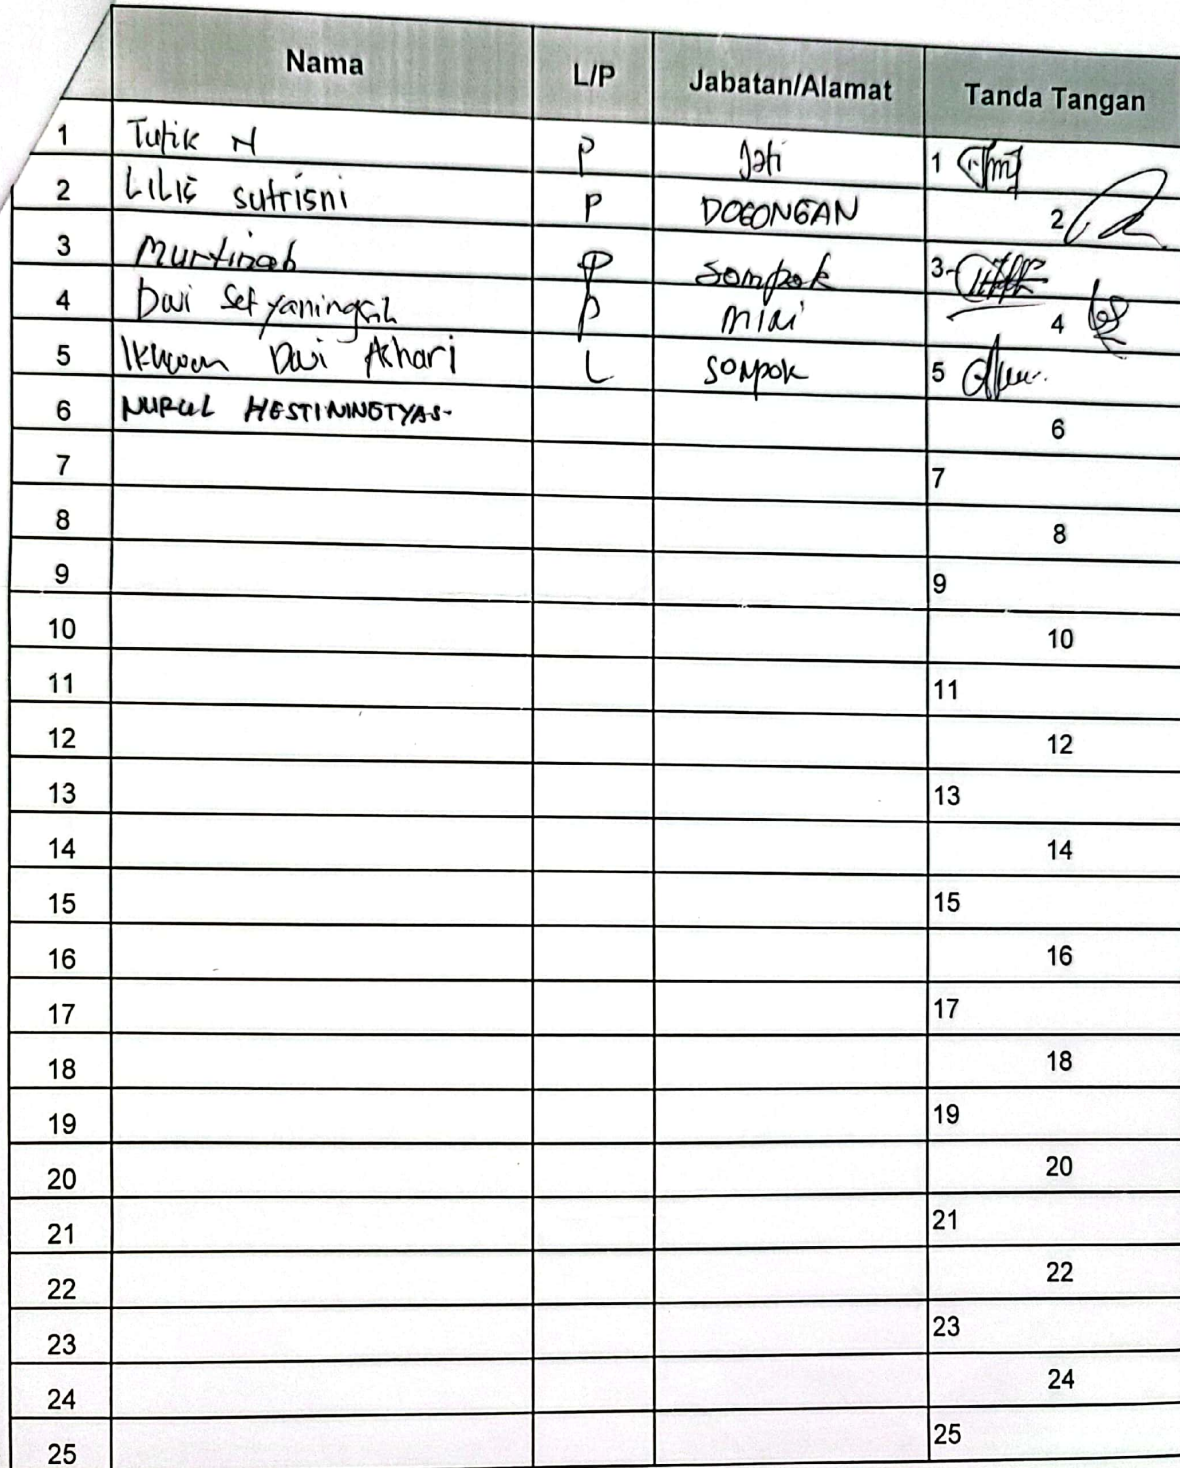 Nama L/P Jabatan/Alamat Tanda Tangan
1 Tutik N P Jati 1
2 Lilis sutrisni P DOGONGAN 2
3 Murtinah P Sompok 3
4 Dwi Setyaningsih P MIRI 4
5 Ikhwan Dwi Ashari L SOMPOK 5
6 NURUL HESTININGTYAS 6
7 7
8 8
9 9
10 10
11 11
12 12
13 13
14 14
15 15
16 16
17 17
18 18
19 19
20 20
21 21
22 22
23 23
24 24
25 25